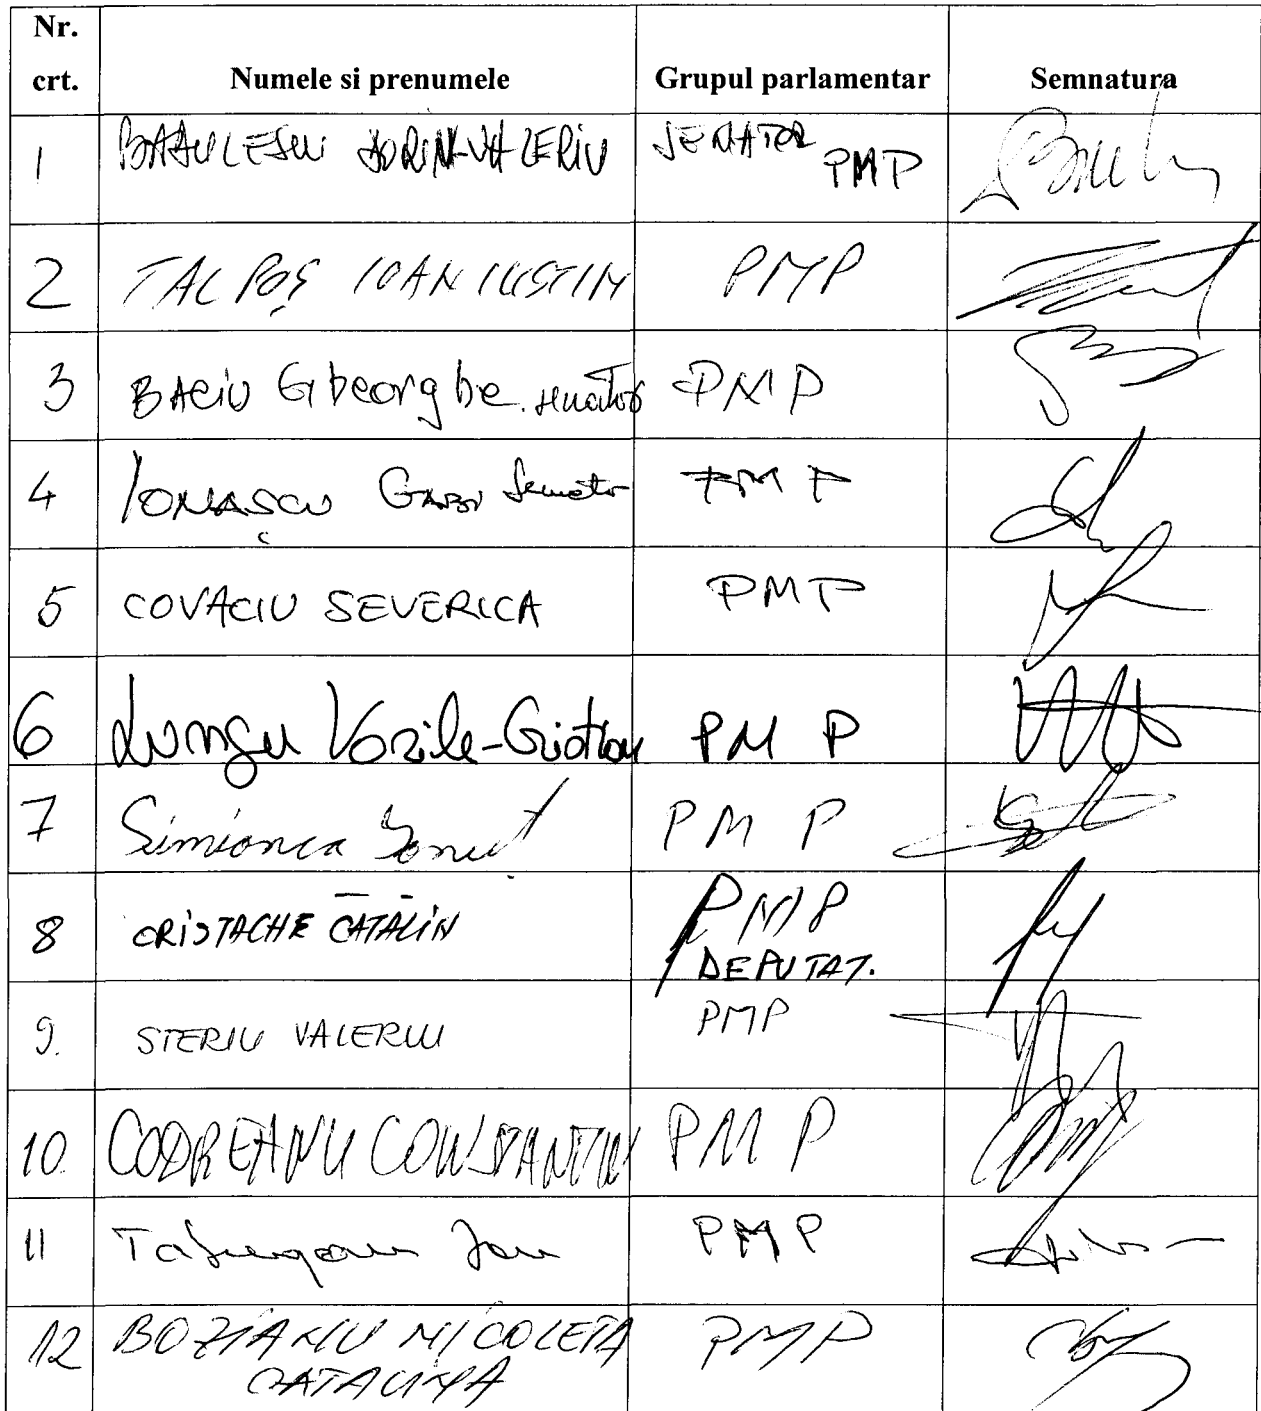 Nr. crt. Numele si prenumele Grupul parlamentar Semnatura
1 ADRIAN-VALERIU SENATOR PMP
2 TALPOȘ IOAN IUSTIN PMP
3 BACIU Gheorghe. senator PMP
4 IONAȘCU GABI Senator PMP
5 COVACIU SEVERICA PMP
6 Lungu Vasile-Cristian PMP
7 Simionca Ionuț PMP
8 CRISTACHE CĂTĂLIN PMP
DEPUTAT.
9. STERIU VALERIU PMP
10. CODREANU CONSTANTIN PMP
11 PMP
12 BOZIANU NICOLETA PMP
CATALINA